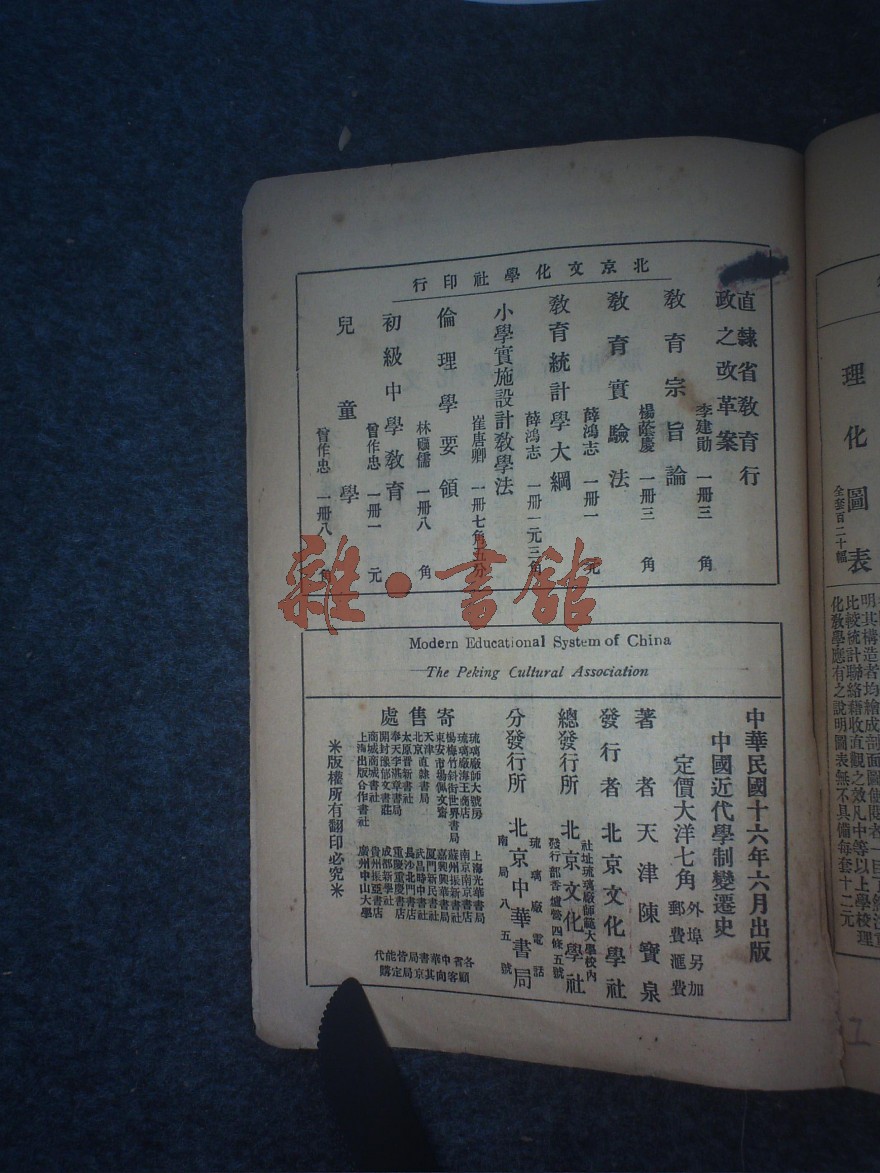 北京文化學社印行
直隸省教育行
政之改革案 李建勛 一冊三角
教育宗旨論 楊蔭慶 一冊三角
教育實驗法 薛鴻志 一冊一元
教育統計學大綱 薛鴻志 一冊一元三角
小學實施設計教學法 崔唐卿 一冊七角五分
倫理學要領 林礪儒 一冊八角
初級中學教育 曾作忠 一冊一元
兒童學 曾作忠 一冊八角
雜·書館
Modern Educational System of China
The Peking Cultural Association
中華民國十六年六月出版
中國近代學制變遷史
定價大洋七角 外埠另加
郵費滙費
著者 天津陳寶泉
發行者 北京文化學社
社址琉璃廠師範大學校內
總發行所 北京文化學社
發行部香爐營四條五號
分發行所 北京中華書局
琉璃廠電話
南局八五號
寄售處
琉璃廠師大號房
琉璃廠海王商店
楊梅竹斜街世界書局
東安市場佩文齋
天津直隸書局
北京
太原晋新書社
奉天李湛章書局
開封豫郁文書莊
商城商城書社
上海出版合作書社
上海光華書局
南京南京書店
蘇州振新書社
嘉興興華書局
廈門新民書社
武昌時中書社
長沙北門書店
重慶重慶書店
成都新學社
貴州振亞書店
廣州中山大學
各省中華書局皆能代
顧客向其京局定購
米版權所有翻印必究米
理化圖表
全套百二十幅
明其構造者均繪成剖面圖使閱者一目了然注重
比較統計聯絡藉收直觀之效凡中等以上學校理
化教學應有之說明圖表無不具備每套十二元